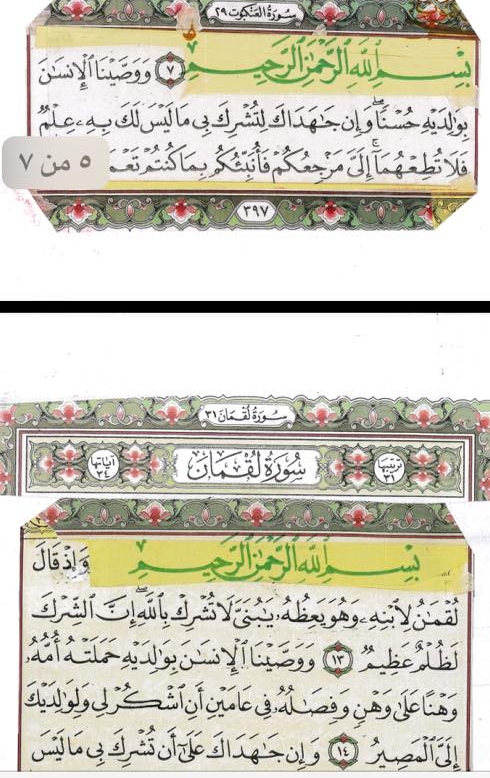 سُورَةُ العَنكَبُوتِ ٢٩
بِسْمِ ٱللَّهِ ٱلرَّحْمَٰنِ ٱلرَّحِيمِ ٧ وَوَصَّيْنَا ٱلْإِنسَٰنَ
بِوَٰلِدَيْهِ حُسْنًا ۖ وَإِن جَٰهَدَاكَ لِتُشْرِكَ بِى مَا لَيْسَ لَكَ بِهِۦ عِلْمٌ
فَلَا تُطِعْهُمَآ ۚ إِلَىَّ مَرْجِعُكُمْ فَأُنَبِّئُكُم بِمَا كُنتُمْ
٥ من ٧
٣٩٧
سُورَةُ لُقْمَانَ ٣١
ترتيبها ٣١ سُورَةُ لُقْمَانَ آياتها ٣٤
بِسْمِ ٱللَّهِ ٱلرَّحْمَٰنِ ٱلرَّحِيمِ وَإِذْ قَالَ
لُقْمَٰنُ لِٱبْنِهِۦ وَهُوَ يَعِظُهُۥ يَٰبُنَىَّ لَا تُشْرِكْ بِٱللَّهِ ۖ إِنَّ ٱلشِّرْكَ
لَظُلْمٌ عَظِيمٌ ١٣ وَوَصَّيْنَا ٱلْإِنسَٰنَ بِوَٰلِدَيْهِ حَمَلَتْهُ أُمُّهُۥ
وَهْنًا عَلَىٰ وَهْنٍ وَفِصَٰلُهُۥ فِى عَامَيْنِ أَنِ ٱشْكُرْ لِى وَلِوَٰلِدَيْكَ
إِلَىَّ ٱلْمَصِيرُ ١٤ وَإِن جَٰهَدَاكَ عَلَىٰٓ أَن تُشْرِكَ بِى مَا لَيْسَ